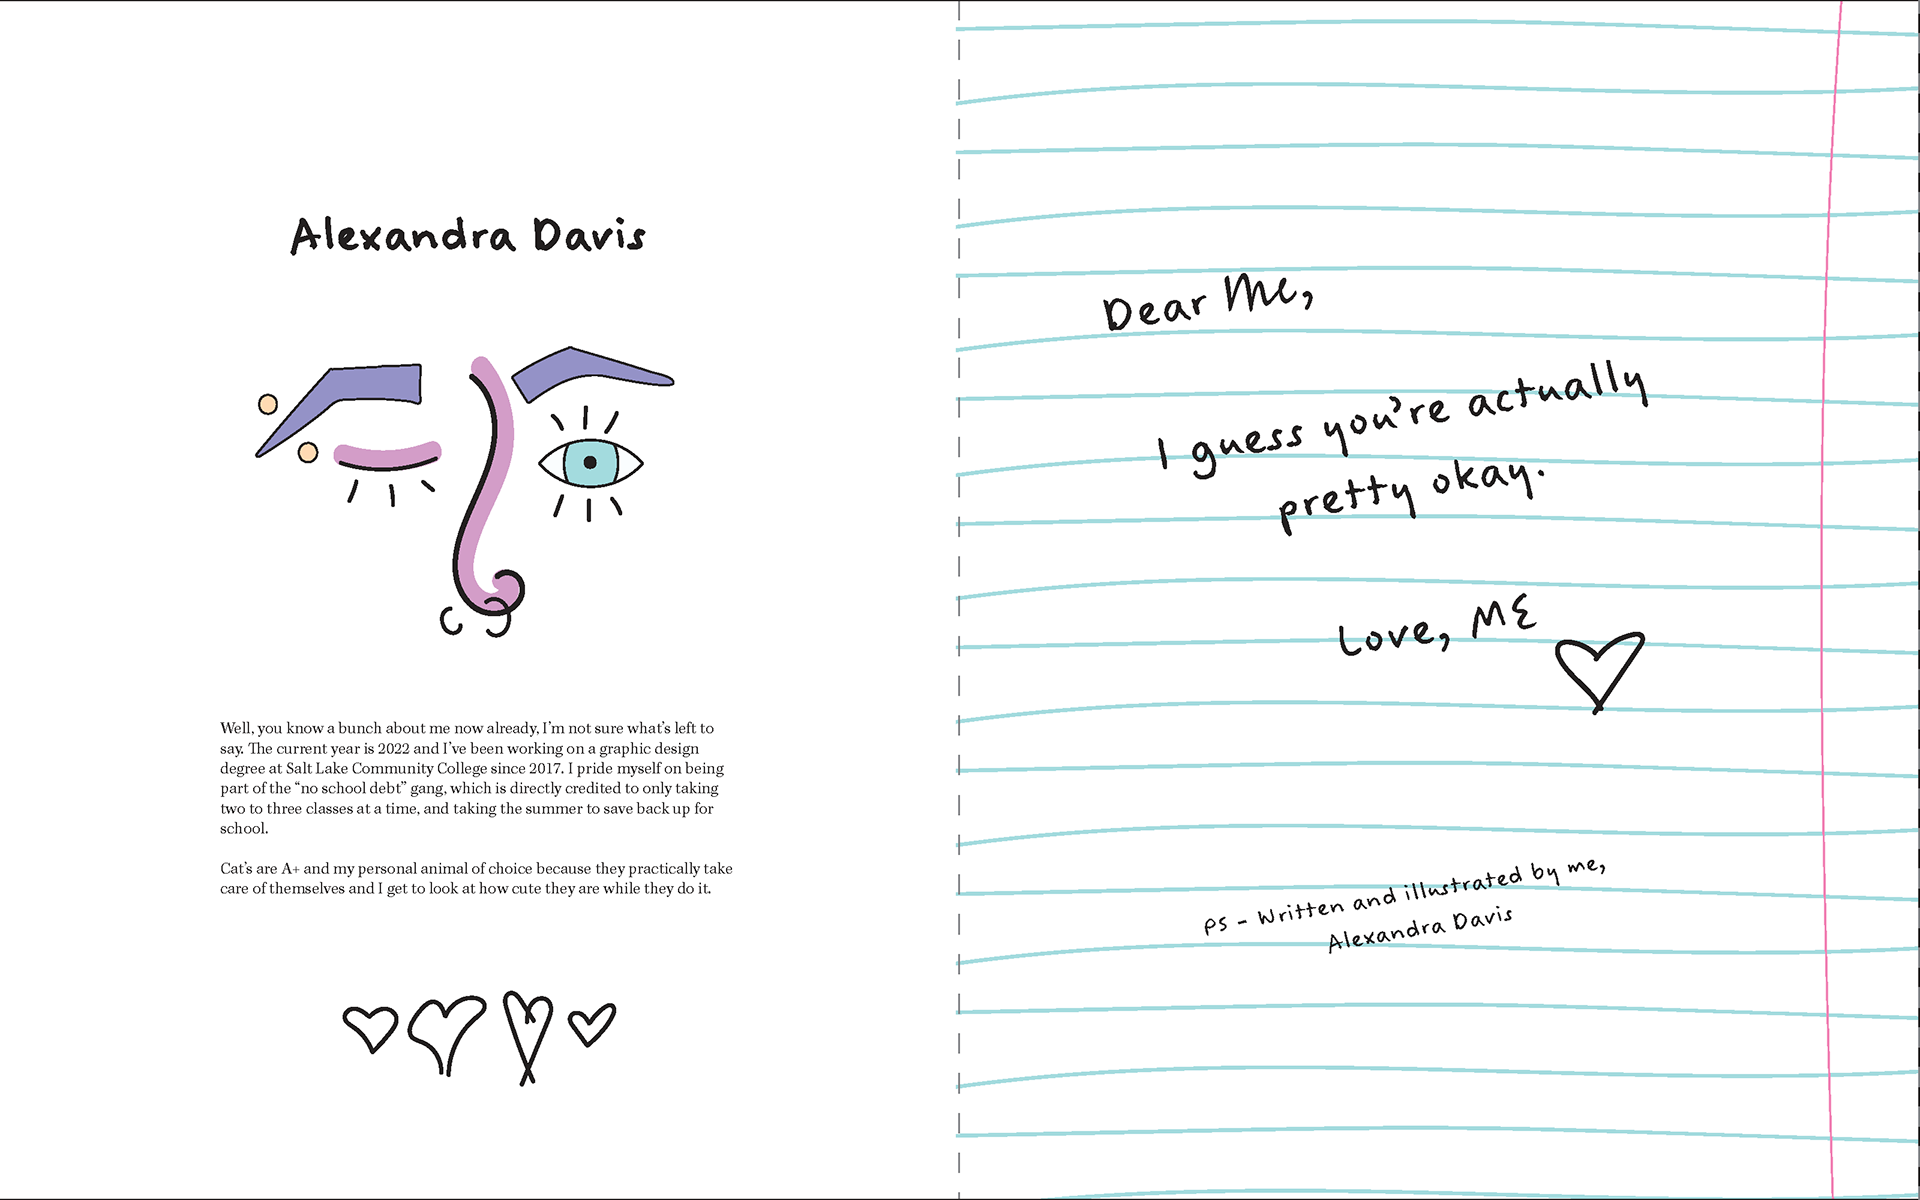 Alexandra Davis
Well, you know a bunch about me now already, I'm not sure what's left to
say. The current year is 2022 and I've been working on a graphic design
degree at Salt Lake Community College since 2017. I pride myself on being
part of the “no school debt” gang, which is directly credited to only taking
two to three classes at a time, and taking the summer to save back up for
school.
Cat's are A+ and my personal animal of choice because they practically take
care of themselves and I get to look at how cute they are while they do it.
Dear Me,
I guess you're actually
pretty okay.
Love, ME
PS - Written and illustrated by me,
Alexandra Davis